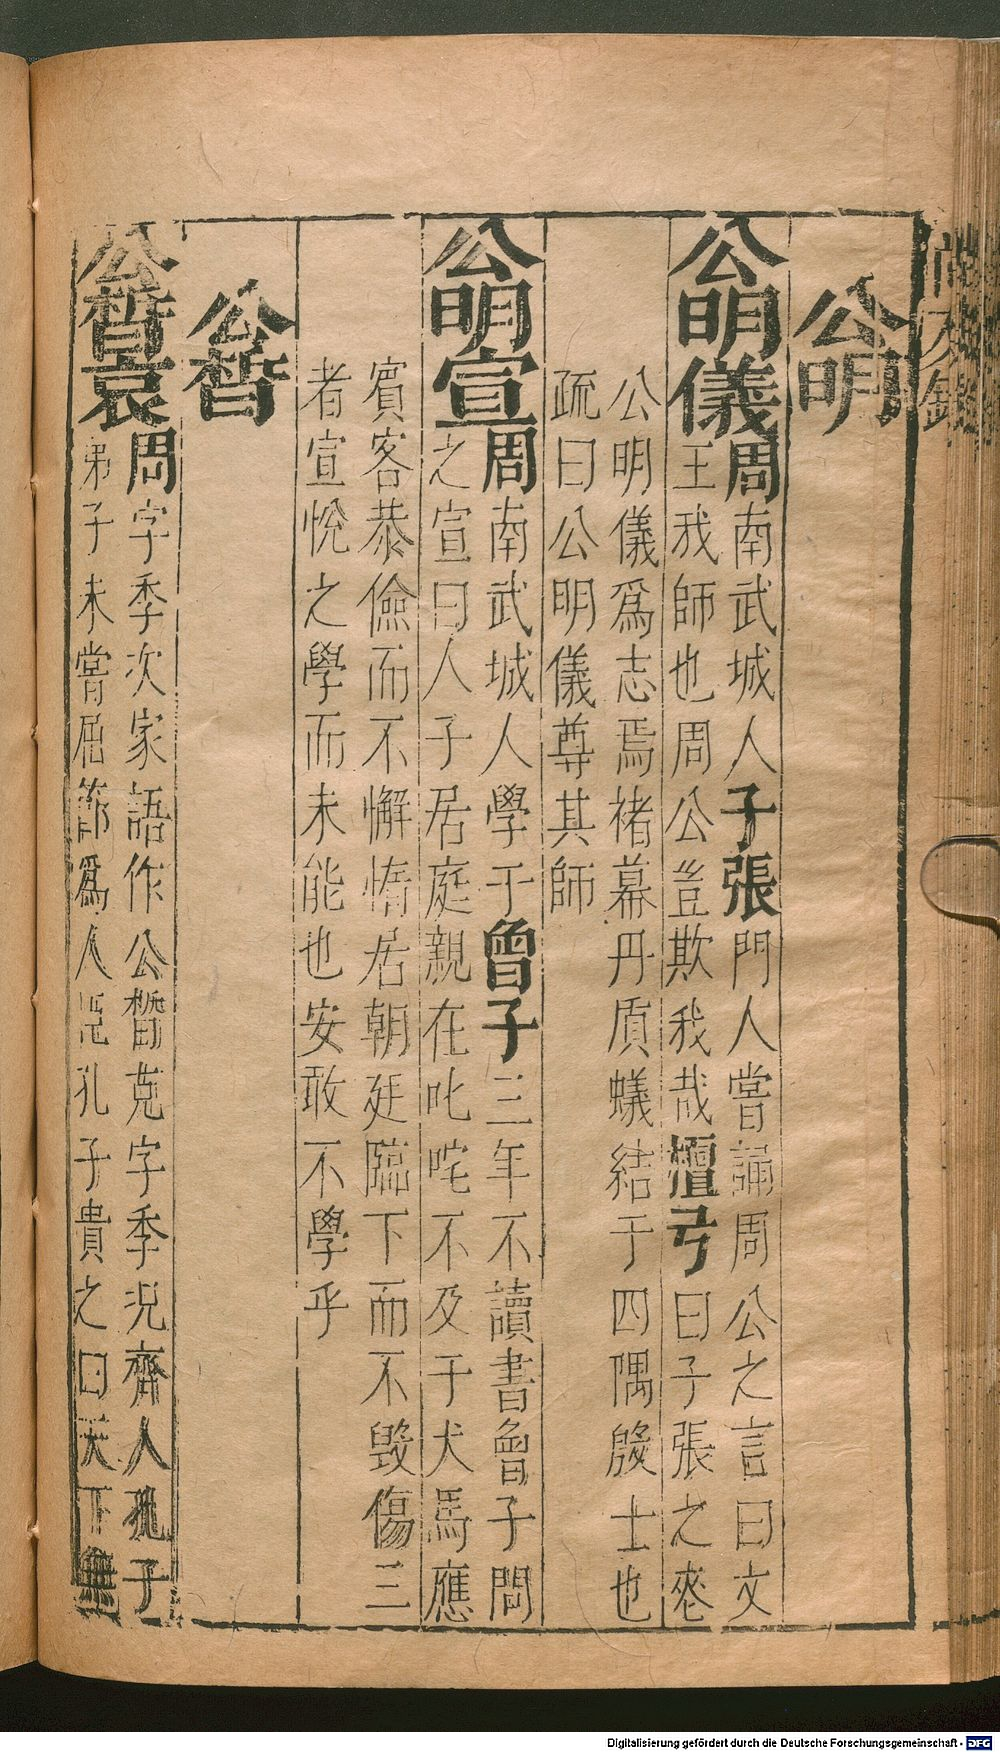 公明
公明儀周南武城人子張門人嘗誦周公之言曰文
王我師也周公豈欺我哉檀弓曰子張之喪
公明儀爲志焉褚幕丹質蟻結于四隅殷士也
疏曰公明儀尊其師
公明宣周南武城人學于曾子三年不讀書曾子問
之宣曰人子居庭親在叱咤不及于犬馬應
賓客恭儉而不懈惰居朝廷臨下而不毀傷三
者宣悅之學而未能也安敢不學乎
公晳
公晳哀周字季次家語作公晳克字季況齊人孔子
弟子未嘗屈節爲人臣孔子貴之曰天下無
Digitalisierung gefördert durch die Deutsche Forschungsgemeinschaft - DFG